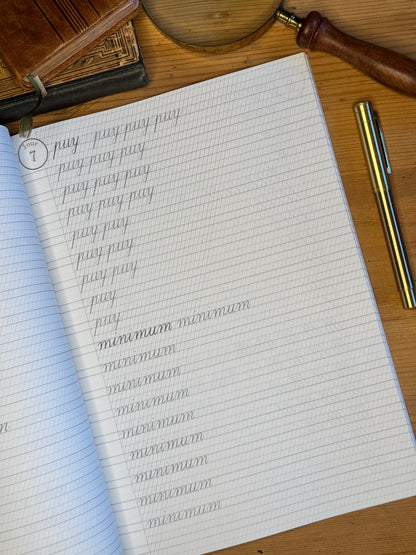 Jour
7
puy puy puy puy
puy puy puy
puy puy puy
puy puy puy
puy puy
puy puy
puy puy
puy
puy
minimum minimum
minimum
minimum
minimum
minimum
minimum
minimum
minimum
minimum